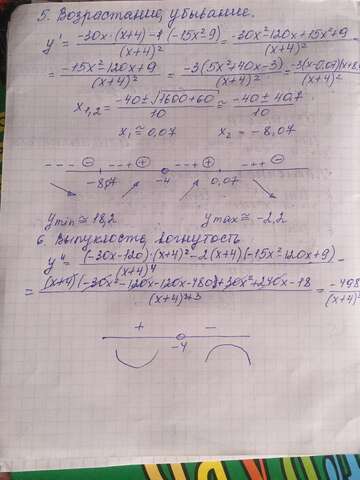 5. Возрастание, убывание.
y' = (-30x·(x+4)-1·(-15x²-9))/(x+4)² = (-30x²-120x+15x²+9)/(x+4)² =
= (-15x²-120x+9)/(x+4)² = -3(5x²+40x-3)/(x+4)² = -3(x-0,07)(x+8,0
x₁,₂ = (-40±√1600+60)/10 ≅ (-40±40,7)/10
x₁ ≅ 0,07 x₂ = -8,07
--- ⊖ --- ⊕ --- ⊕ --- ⊖
-8,07 -4 0,07
ymin ≅ 18,2 ymax ≅ -2,2
6. Выпуклость, вогнутость
y'' = ((-30x-120)·(x+4)²-2(x+4)(-15x²-120x+9))/(x+4)⁴ =
= ((x+4)(-30x²-120x-120x-480)+30x²+240x-18)/(x+4)⁴³ = -498/(x+4)³
+ -
-4